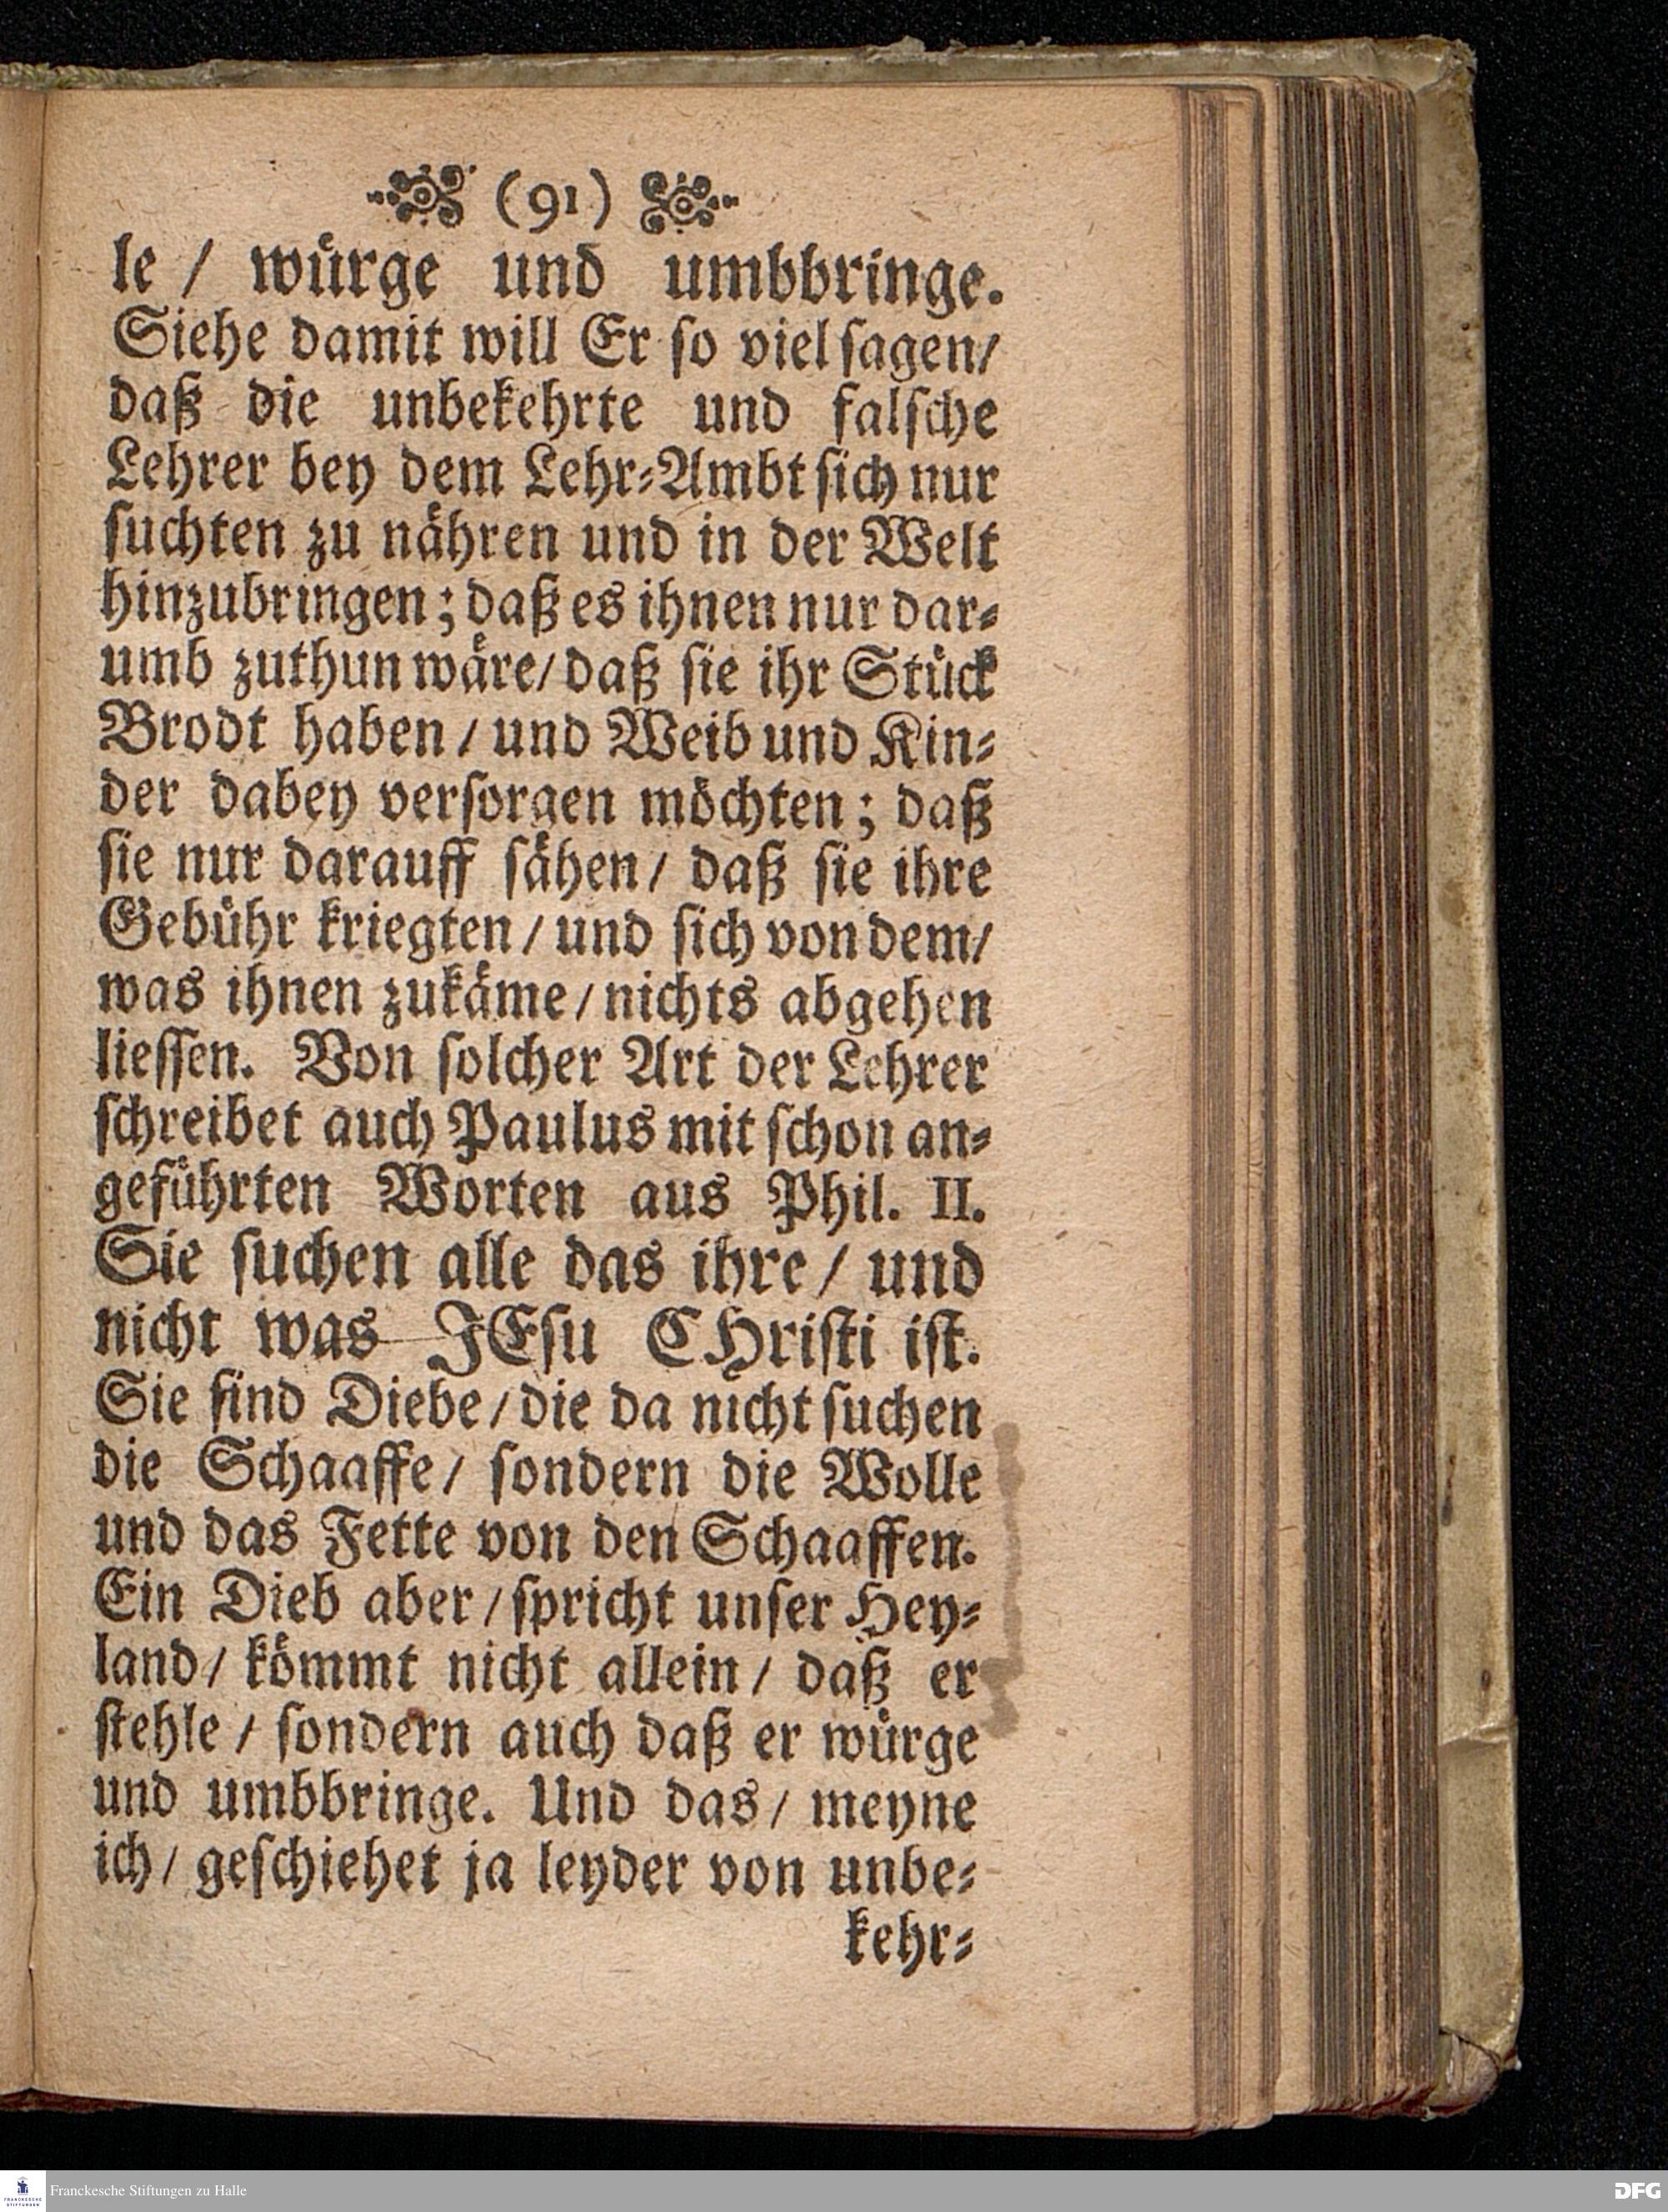 (91)
le / würge und umbbringe.
Siehe damit will Er so viel sagen/
daß die unbekehrte und falsche
Lehrer bey dem Lehr-Ambt sich nur
suchten zu nähren und in der Welt
hinzubringen; daß es ihnen nur dar-
umb zuthun wäre/ daß sie ihr Stück
Brodt haben / und Weib und Kin-
der dabey versorgen möchten; daß
sie nur darauff sähen/ daß sie ihre
Gebühr kriegten / und sich von dem/
was ihnen zukäme / nichts abgehen
liessen. Von solcher Art der Lehrer
schreibet auch Paulus mit schon an-
geführten Worten aus Phil. II.
Sie suchen alle das ihre / und
nicht was JEsu CHristi ist.
Sie sind Diebe / die da nicht suchen
die Schaaffe / sondern die Wolle
und das Fette von den Schaaffen.
Ein Dieb aber / spricht unser Hey-
land / kömmt nicht allein / daß er
stehle / sondern auch daß er würge
und umbbringe. Und das / meyne
ich / geschiehet ja leyder von unbe-
kehr-
FRANCKESCHE
STIFTUNGEN
Franckesche Stiftungen zu Halle
DFG